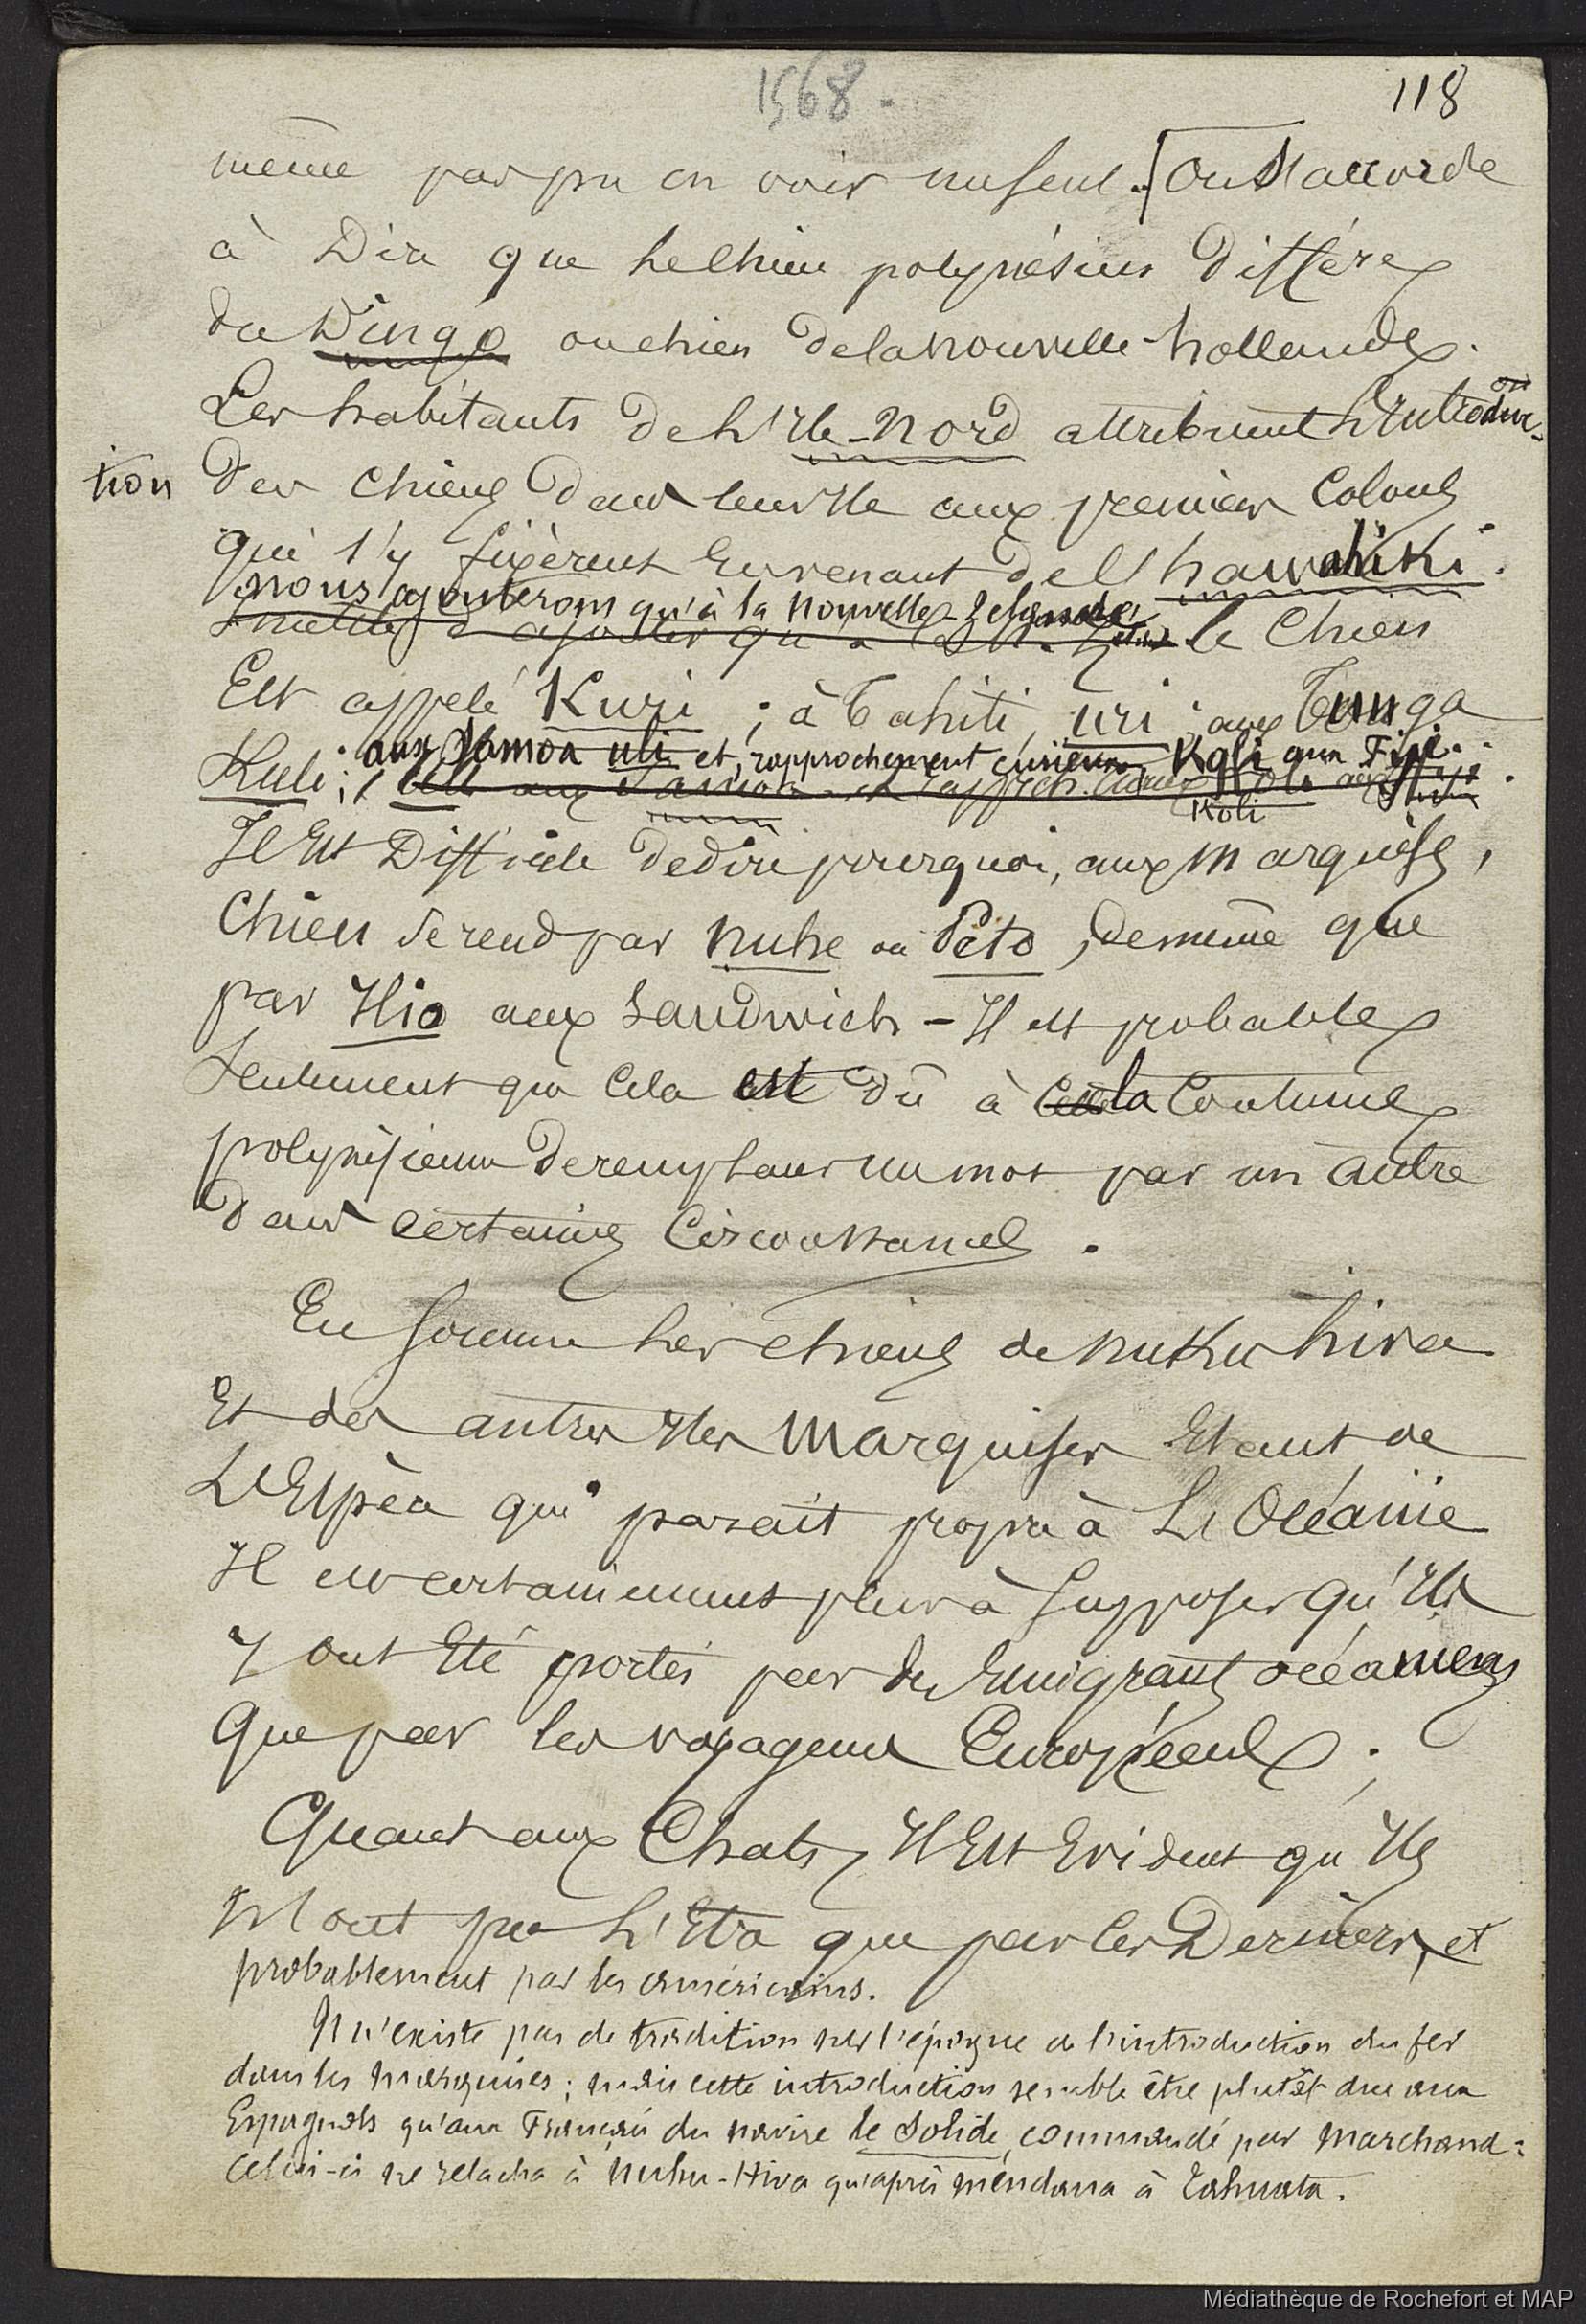 1568.
118
même pas pu en voir un seul. [On s'accorde
à dire que le chien polynésien diffère
du Dingo ou chien de la nouvelle-hollande.
Les habitants de l'Ile-Nord attribuent l'introduc-
tion des chiens dans leur Ile aux premiers Colons
qui s'y fixèrent en venant de l'hawahiki.
nous ajouterons qu'à la nouvelle-Zélande
le Chien
Est appelé Kuri ; à Tahiti, uri ; aux Tunga
aux Samoa uli et, rapprochement curieux Koli aux Fiji.
Kuli ;
Koli
Il Est Difficile de dire pourquoi, aux Marquises,
Chien se rend par nuhe ou Péto, de même que
par Ilio aux Sandwich - Il est probable
seulement que Cela est dû à la Coutume
polynésienne de remplacer un mot par un autre
dans certaines Circonstances.
En somme les chiens de nuku hiva
Et des autres Iles Marquises Etant de
L'Espèce qui paraît propre à L'Océanie
Il est certainement plus à supposer qu'Ils
y ont Eté portés par des Emigrants océaniens
que par les voyageurs Européens ;
Quant aux Chats, Il Est Evident qu'Ils
n'ont pu l'Etre que par les Derniers, et
probablement par les américains.
Il n'existe pas de tradition sur l'époque de l'introduction du fer
dans les Marquises ; mais cette introduction semble être plutôt due aux
Espagnols qu'aux Français du navire le Solide, commandé par Marchand :
Celui-ci ne relacha à Nuku-Hiva qu'après Mendana à Tahuata.
Médiathèque de Rochefort et MAP